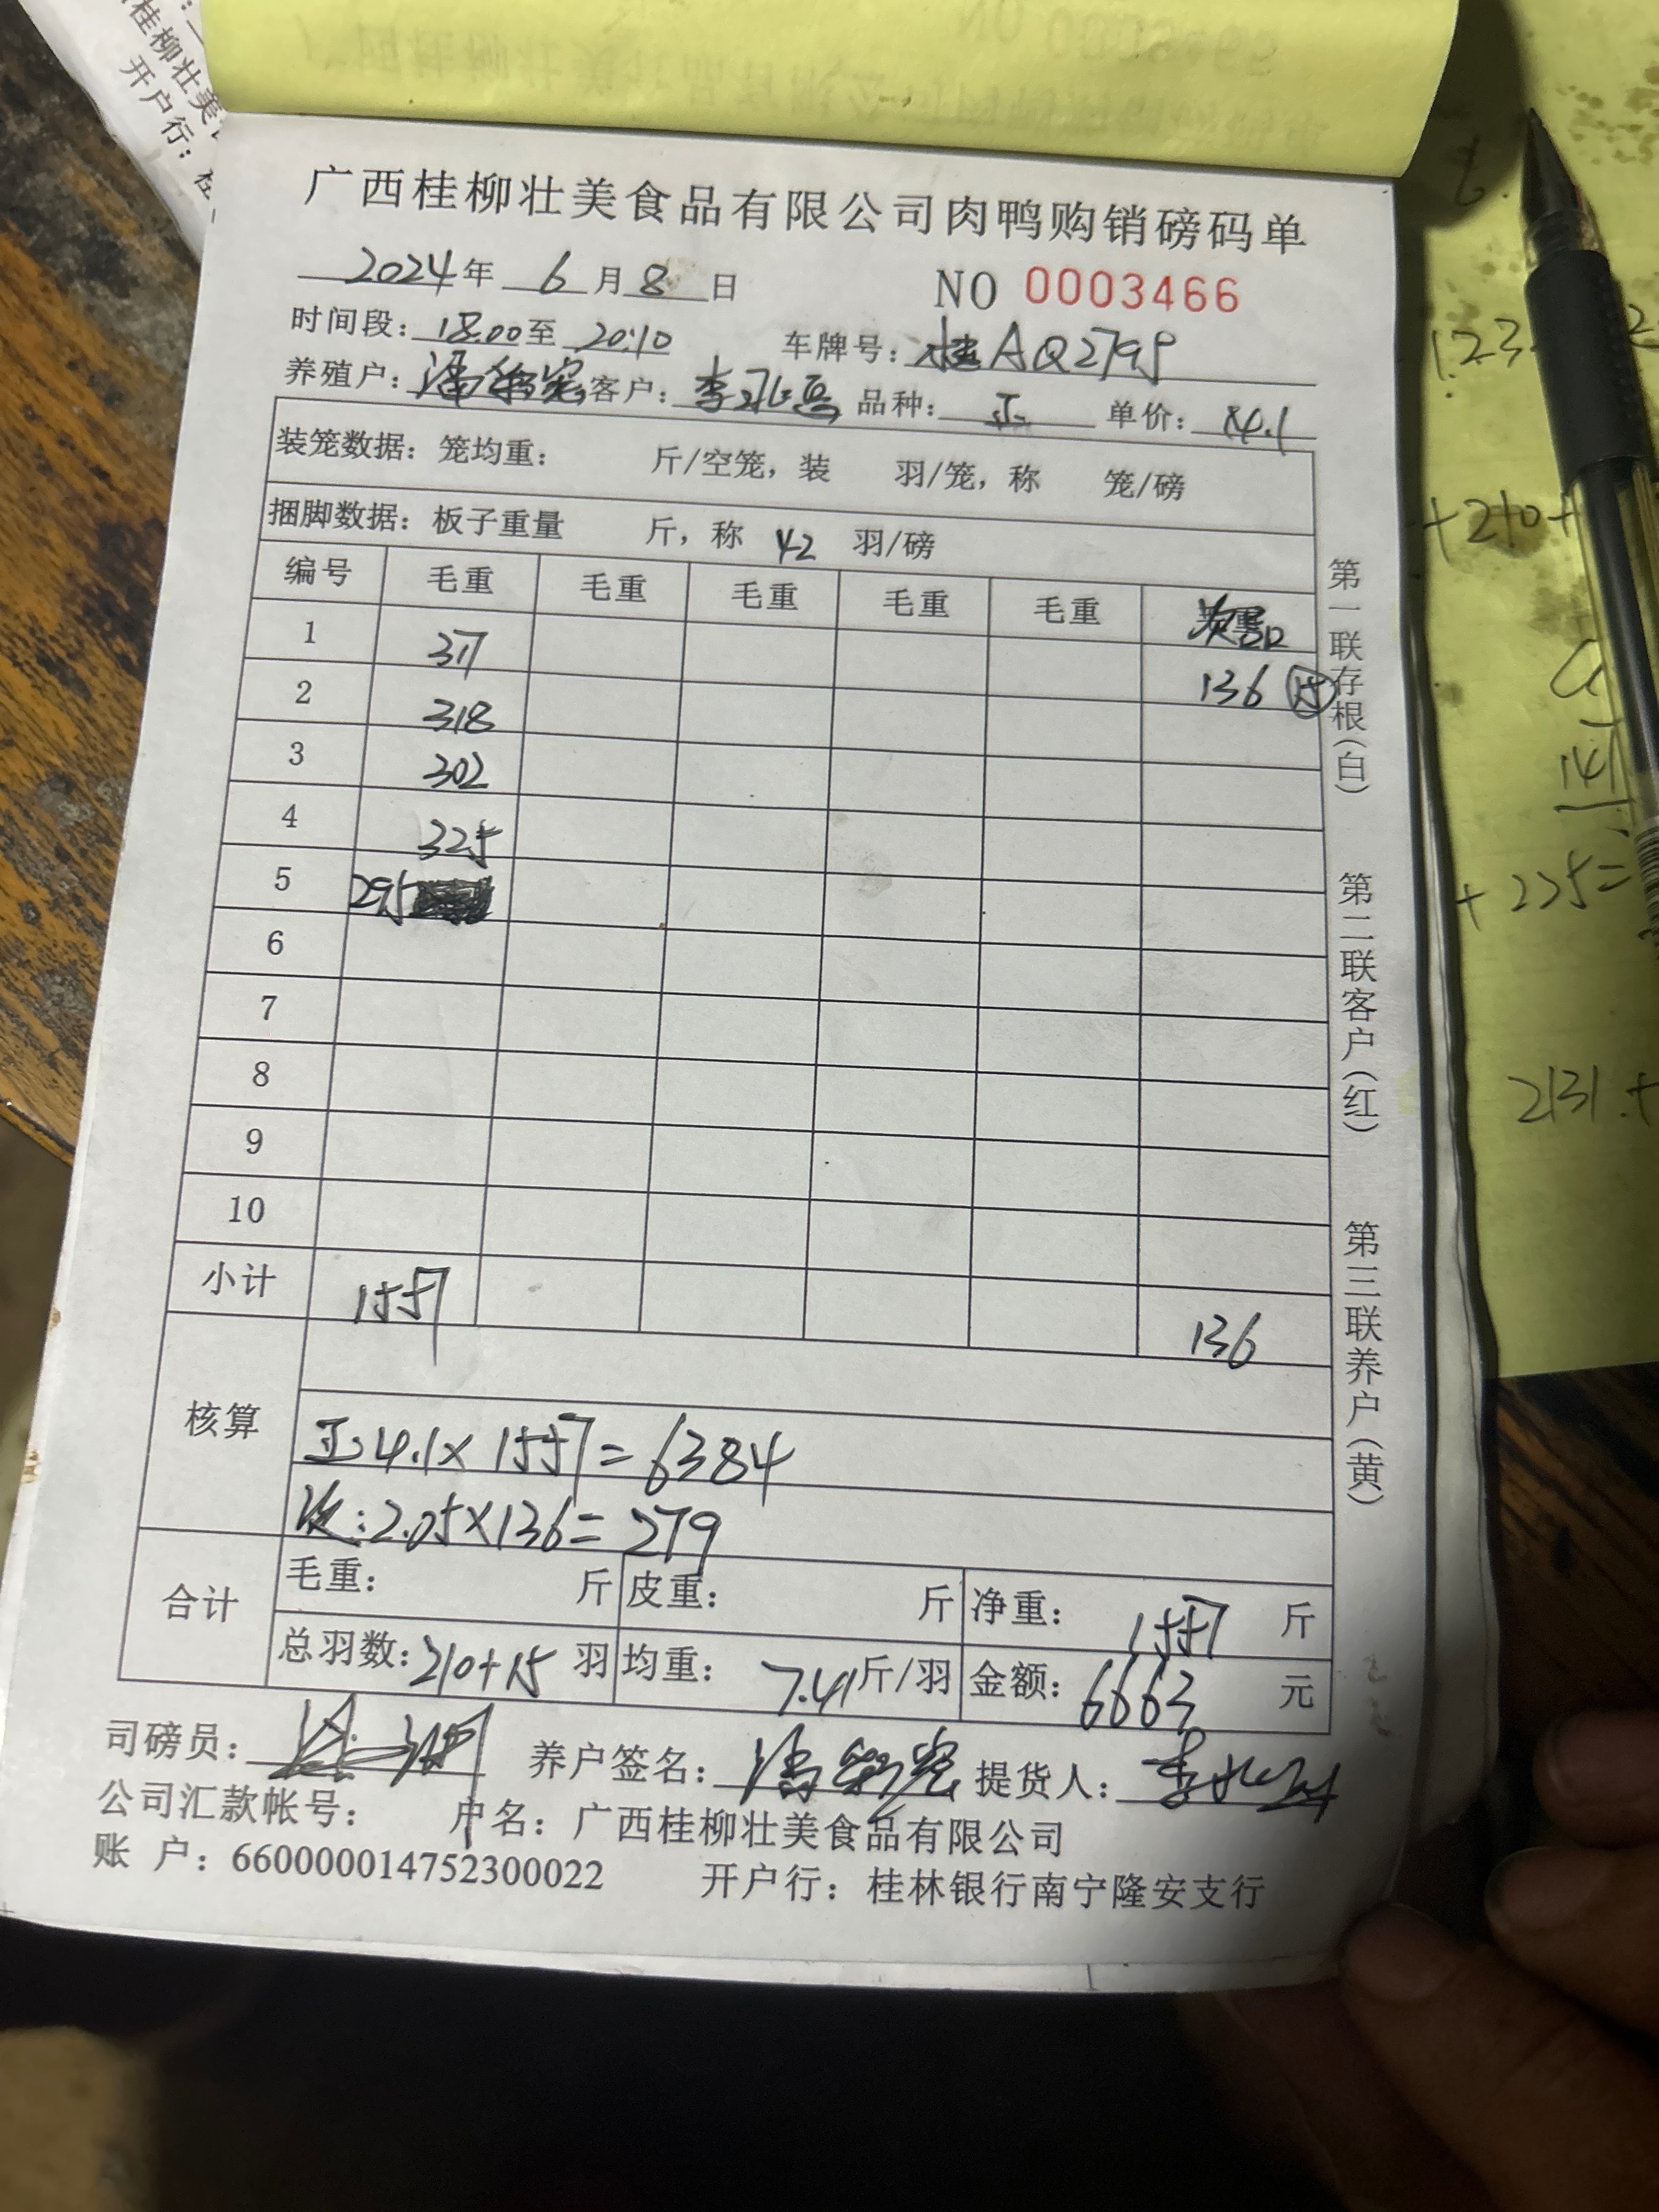 桂柳壮美
开户行：桂
广西桂柳壮美食品有限公司肉鸭购销磅码单
2024年 6月 8日 NO 0003466
时间段：18.00至 20:10 车牌号：桂AQ279
养殖户：潘 客户：李 品种：正 单价：4.1
装笼数据：笼均重： 斤/空笼，装 羽/笼，称 笼/磅
捆脚数据：板子重量 斤，称 42 羽/磅
编号 毛重 毛重 毛重 毛重 毛重
1 317
2 318 136 15
3 302
4 325
5 295
6
7
8
9
10
小计 1557 136
核算
正：4.1×1557=6384
次：2.05×136=279
合计
毛重： 斤 皮重： 斤 净重：1557 斤
总羽数：210+15 羽 均重：7.41斤/羽 金额：6663 元
司磅员： 养户签名：潘 提货人：李
公司汇款帐号： 户名：广西桂柳壮美食品有限公司
账 户：660000014752300022 开户行：桂林银行南宁隆安支行
第一联存根（白）
第二联客户（红）
第三联养户（黄）
123
+210+
141
+225=
2131.+